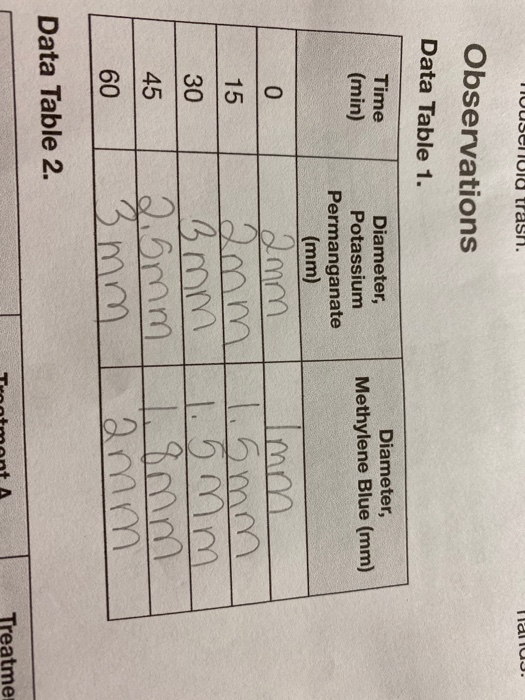 household trash.
hands.
Observations
Data Table 1.
Time (min) Diameter, Potassium Permanganate (mm) Diameter, Methylene Blue (mm)
0 2mm 1mm
15 2mm 1.5mm
30 3mm 1.5mm
45 2.5mm 1.8mm
60 3mm 2mm
Data Table 2.
Treatment A